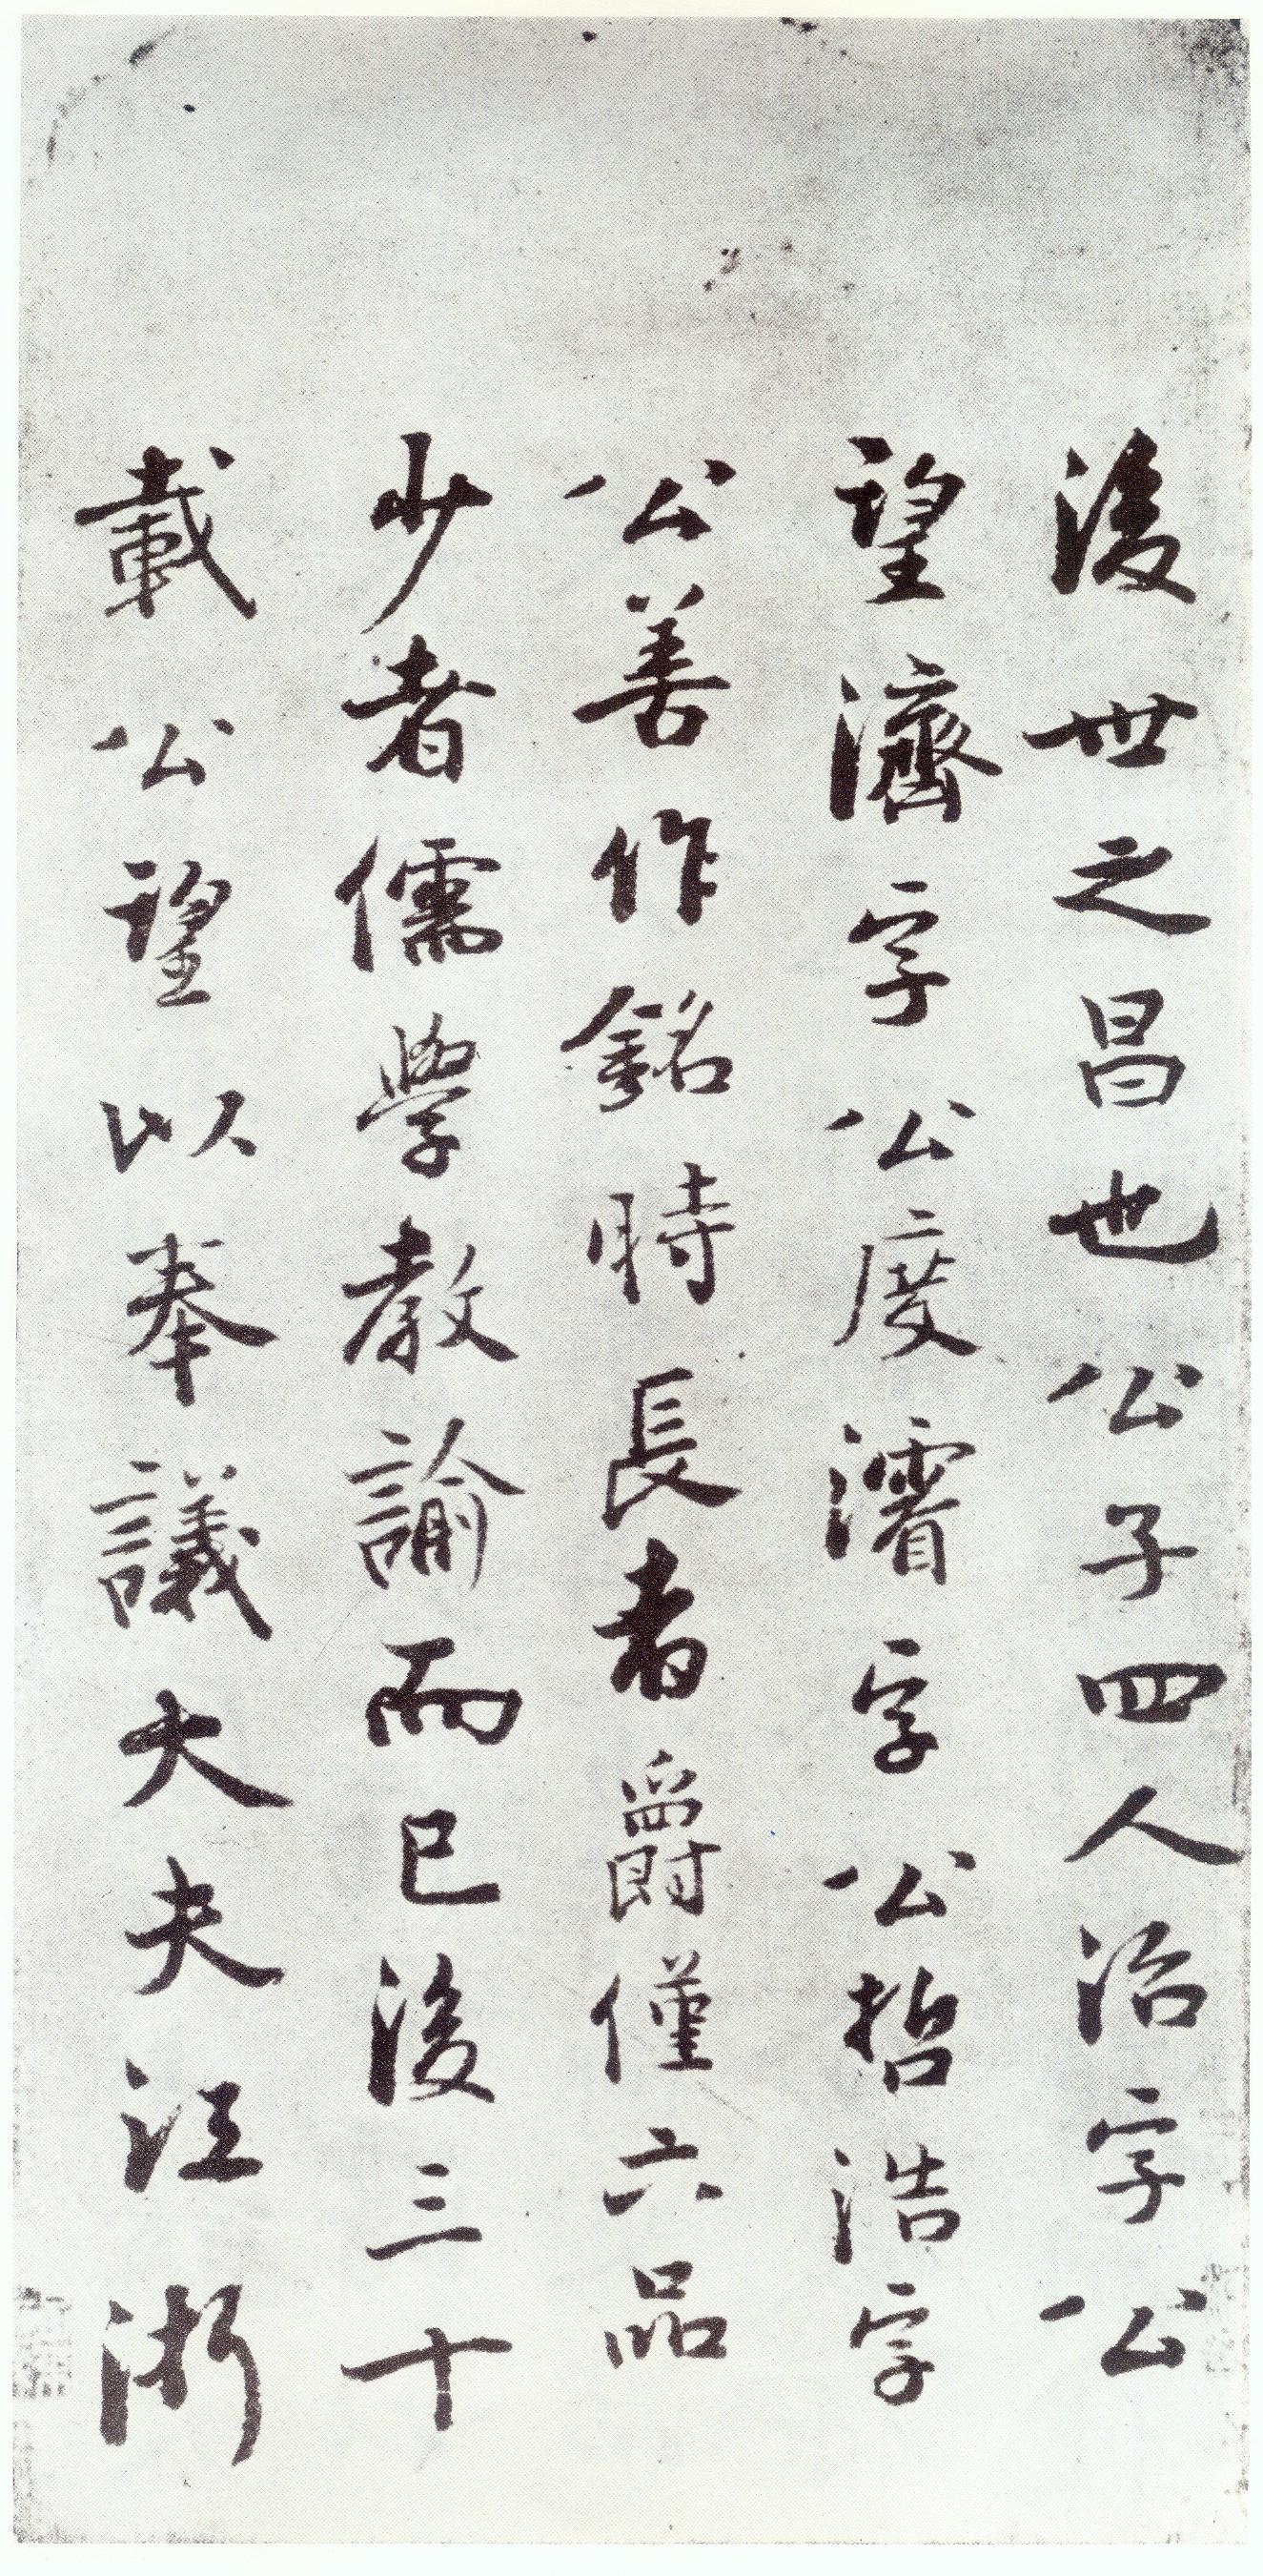 後世之昌也公子四人治字公
望濟字公度濬字公哲浩字
公善作銘時長者爵僅六品
少者儒學教諭而已後三十
載公望以奉議大夫江浙